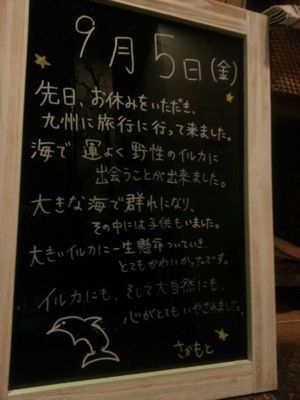 9月5日(金)
先日、お休みをいただき、
九州に旅行に行って来ました。
海で運よく野性のイルカに
出会うことが出来ました。
大きな海で群れになり、
その中には子供もいました。
大きいイルカに一生懸命ついていき、
とてもかわいかったです。
イルカにも、そして大自然にも、
心がとてもいやされました。
さかもと